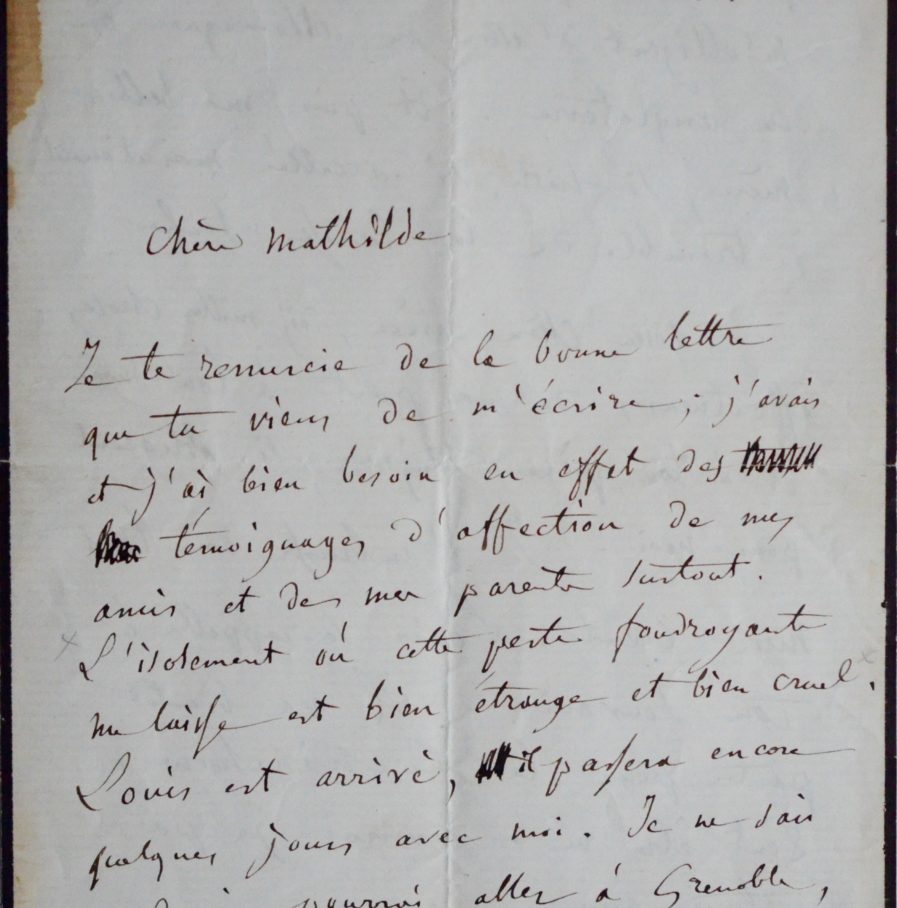 Chère Mathilde
Je te remercie de la bonne lettre
que tu viens de m'écrire; j'avais
et j'ai bien besoin en effet des
témoignages d'affection de mes
amis et de mes parents surtout.
L'isolement où cette perte foudroyante
me laisse est bien étrange et bien cruel.
Louis est arrivé, il passera encore
quelques jours avec moi. Je ne sais
pourrai aller à Grenoble,